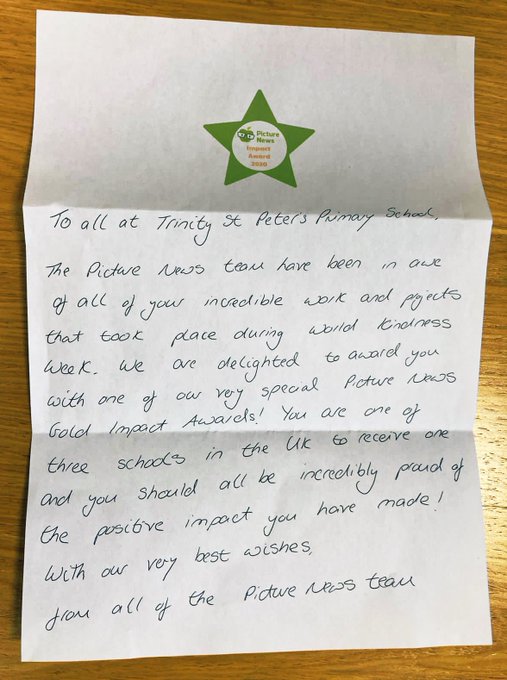 Picture
News
Impact
Award
2020
To all at Trinity St Peter's Primary School,
The Picture News team have been in awe
of all of your incredible work and projects
that took place during World Kindness
Week. We are delighted to award you
with one of our very special Picture News
Gold Impact Awards! You are one of
three schools in the UK to receive one
and you should all be incredibly proud of
the positive impact you have made!
With our very best wishes,
from all of the Picture News team